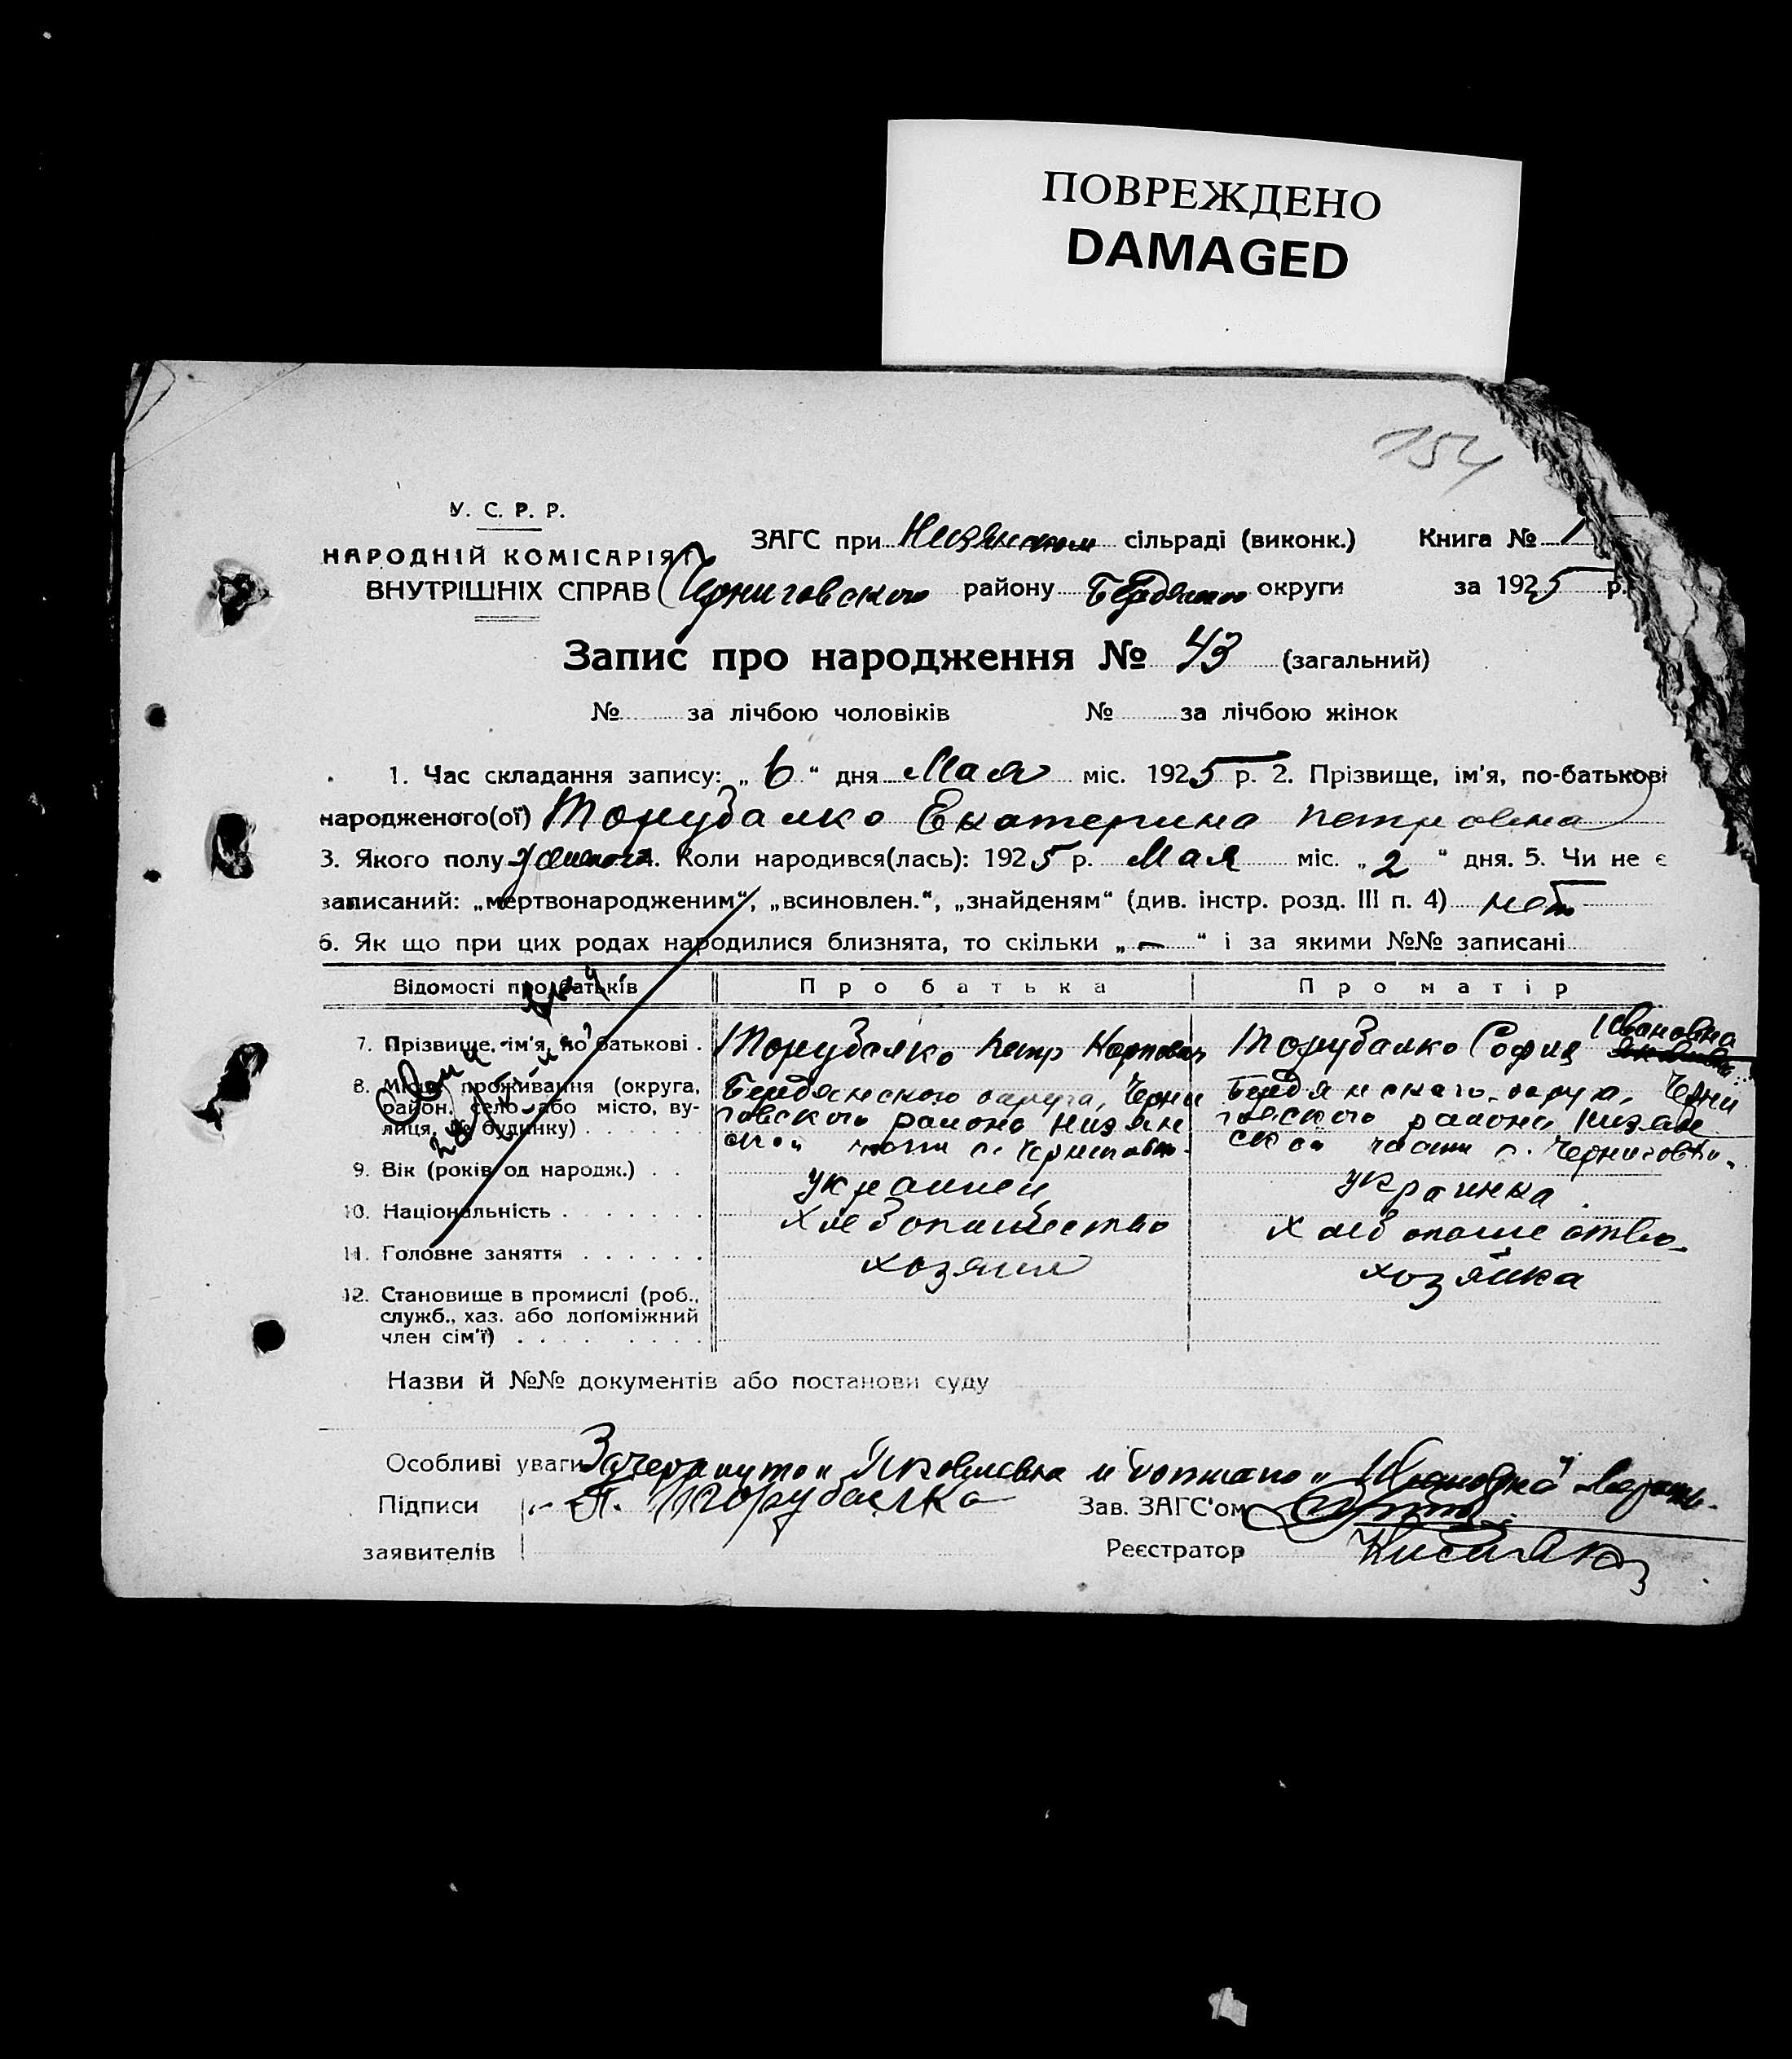 ПОВРЕЖДЕНО
DAMAGED
154
У. С. Р. Р.
НАРОДНІЙ КОМІСАРІЯТ
ВНУТРІШНІХ СПРАВ
ЗАГС при Низянском сільраді (виконк.) Книга № 1
Черниговского району Бердянского округи за 1925 р.
Запис про народження № 43 (загальний)
№ за лічбою чоловіків № за лічбою жінок
1. Час складання запису: „ 6 “ дня Мая міс. 1925 р. 2. Прізвище, ім'я, по-батькові
народженого(ої) Торубалко Екатерина Петровна
3. Якого полу 4. Коли народився(лась): 1925 р. Мая міс. „ 2 “ дня. 5. Чи не є
записаний: „мертвонародженим“, „всиновлен.“, „знайденям“ (див. інстр. розд. III п. 4) нет
6. Як що при цих родах народилися близнята, то скільки „ — “ і за якими №№ записані
Відомості про батьків Про батька Про матір
7. Прізвище, ім'я, по батькові . Торубалко Петр Карпович Торубалко София Ивановна
8. Місце проживання (округа, район, село або місто, вулиця, № будинку) . . . . .
Бердянского округа, Черни
говского района Низян
ской части с. Черниговки
Бердянского округа, Черни
говского района Низян
ской части с. Черниговки
9. Вік (років од народж.) . .
украинец украинка
10. Національність . . . . . . .
хлебопашество хлебопашество
11. Головне заняття . . . . . .
хозяин хозяйка
12. Становище в промислі (роб.,
служб., хаз. або допоміжний
член сім'ї) . . . . . . . . .
Назви й №№ документів або постанови суду
Особливі уваги Зачеркнуто „Яковлевна и вописано „Ивановна“
Підписи П. Торубалко Зав. ЗАГС'ом
заявителів Реєстратор